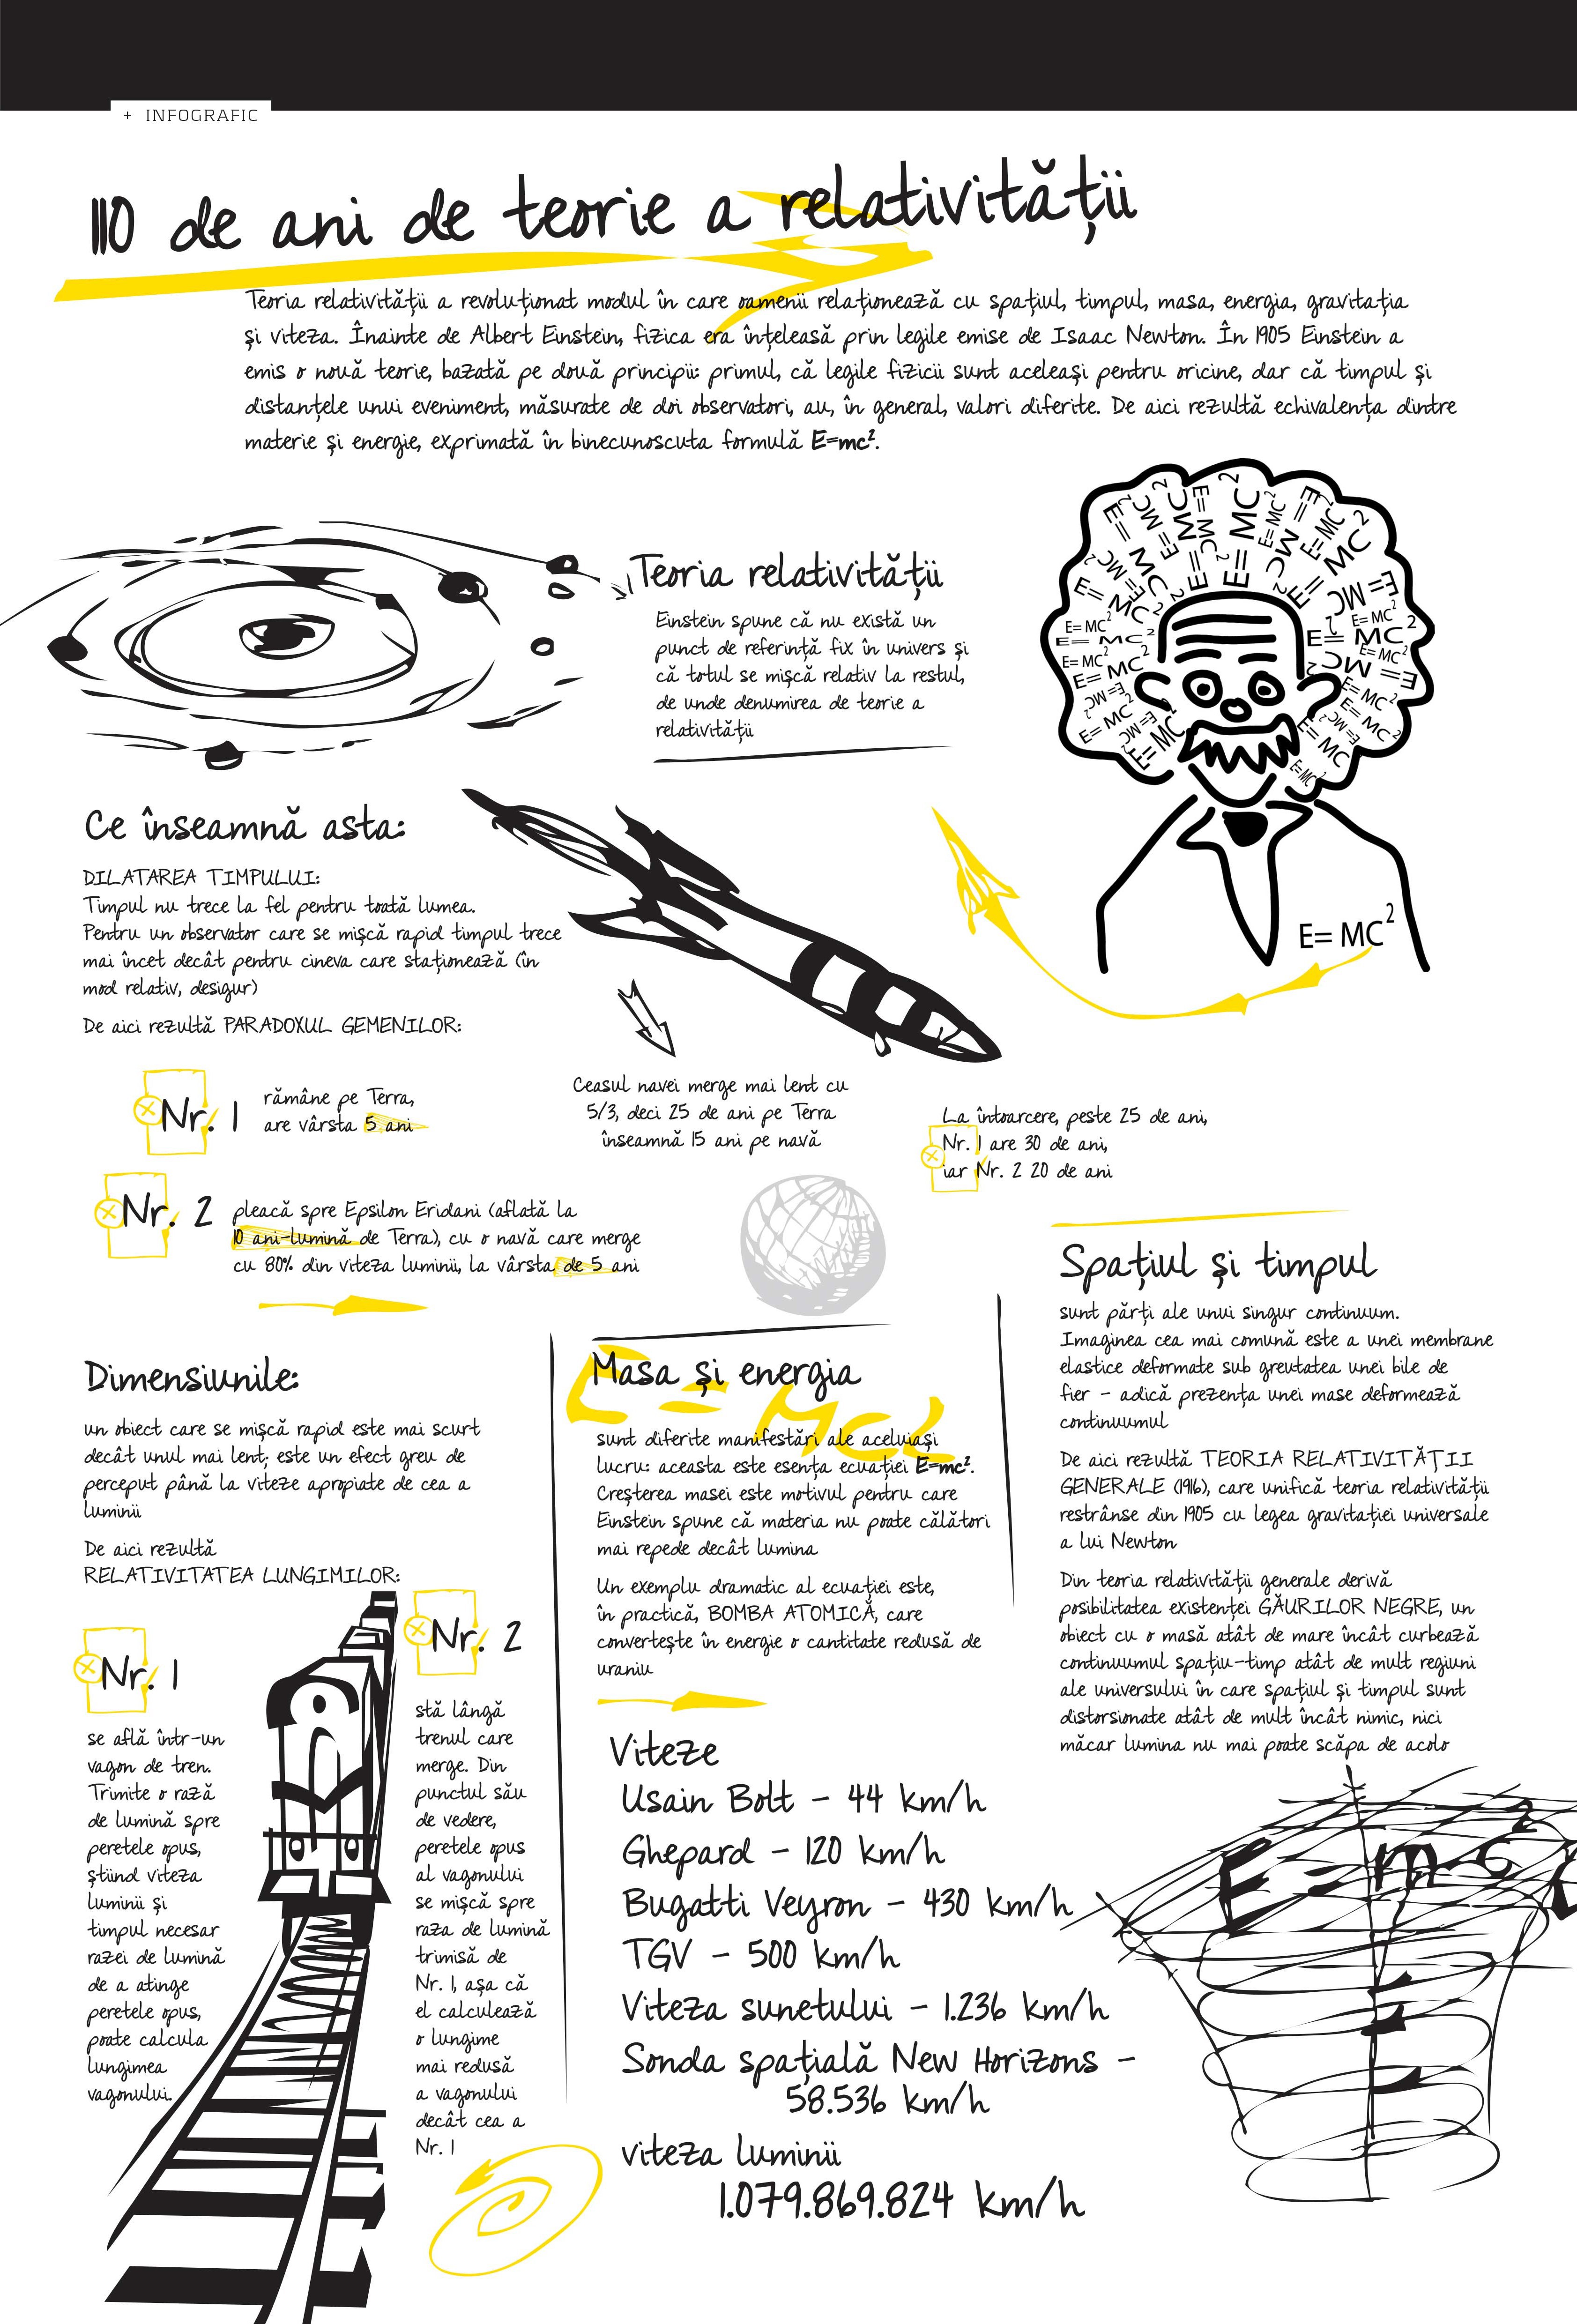 + INFOGRAFIC
110 de ani de teorie a relativității
Teoria relativității a revoluționat modul în care oamenii relaționează cu spațiul, timpul, masa, energia, gravitația
și viteza. Înainte de Albert Einstein, fizica era înțeleasă prin legile emise de Isaac Newton. În 1905 Einstein a
emis o nouă teorie, bazată pe două principii: primul, că legile fizicii sunt aceleași pentru oricine, dar că timpul și
distanțele unui eveniment, măsurate de doi observatori, au, în general, valori diferite. De aici rezultă echivalența dintre
materie și energie, exprimată în binecunoscuta formulă E=mc².
Teoria relativității
Einstein spune că nu există un
punct de referință fix în univers și
că totul se mișcă relativ la restul,
de unde denumirea de teorie a
relativității
E= MC²
Ce înseamnă asta:
DILATAREA TIMPULUI:
Timpul nu trece la fel pentru toată lumea.
Pentru un observator care se mișcă rapid timpul trece
mai încet decât pentru cineva care staționează (în
mod relativ, desigur)
De aici rezultă PARADOXUL GEMENILOR:
Nr. 1
rămâne pe Terra,
are vârsta 5 ani
Nr. 2
pleacă spre Epsilon Eridani (aflată la
10 ani-lumină de Terra), cu o navă care merge
cu 80% din viteza luminii, la vârsta de 5 ani
Ceasul navei merge mai lent cu
5/3, deci 25 de ani pe Terra
înseamnă 15 ani pe navă
La întoarcere, peste 25 de ani,
Nr. 1 are 30 de ani,
iar Nr. 2 20 de ani
Dimensiunile:
un obiect care se mișcă rapid este mai scurt
decât unul mai lent; este un efect greu de
perceput până la viteze apropiate de cea a
luminii
De aici rezultă
RELATIVITATEA LUNGIMILOR:
Nr. 1
se află într-un
vagon de tren.
Trimite o rază
de lumină spre
peretele opus,
știind viteza
luminii și
timpul necesar
razei de lumină
de a atinge
peretele opus,
poate calcula
lungimea
vagonului.
Nr. 2
stă lângă
trenul care
merge. Din
punctul său
de vedere,
peretele opus
al vagonului
se mișcă spre
raza de lumină
trimisă de
Nr. 1, așa că
el calculează
o lungime
mai redusă
a vagonului
decât cea a
Nr. 1
E = Mc2
Masa și energia
sunt diferite manifestări ale aceluiași
lucru: aceasta este esența ecuației E=mc².
Creșterea masei este motivul pentru care
Einstein spune că materia nu poate călători
mai repede decât lumina
Un exemplu dramatic al ecuației este,
în practică, BOMBA ATOMICĂ, care
convertește în energie o cantitate redusă de
uraniu
Viteze
Usain Bolt - 44 km/h
Ghepard - 120 km/h
Bugatti Veyron - 430 km/h
TGV - 500 km/h
Viteza sunetului - 1.236 km/h
Sonda spațială New Horizons -
58.536 km/h
viteza luminii
1.079.869.824 km/h
Spațiul și timpul
sunt părți ale unui singur continuum.
Imaginea cea mai comună este a unei membrane
elastice deformate sub greutatea unei bile de
fier - adică prezența unei mase deformează
continuumul
De aici rezultă TEORIA RELATIVITĂȚII
GENERALE (1916), care unifică teoria relativității
restrânse din 1905 cu legea gravitației universale
a lui Newton
Din teoria relativității generale derivă
posibilitatea existenței GĂURILOR NEGRE, un
obiect cu o masă atât de mare încât curbează
continuumul spațiu-timp atât de mult regiuni
ale universului în care spațiul și timpul sunt
distorsionate atât de mult încât nimic, nici
măcar lumina nu mai poate scăpa de acolo
E=mc²